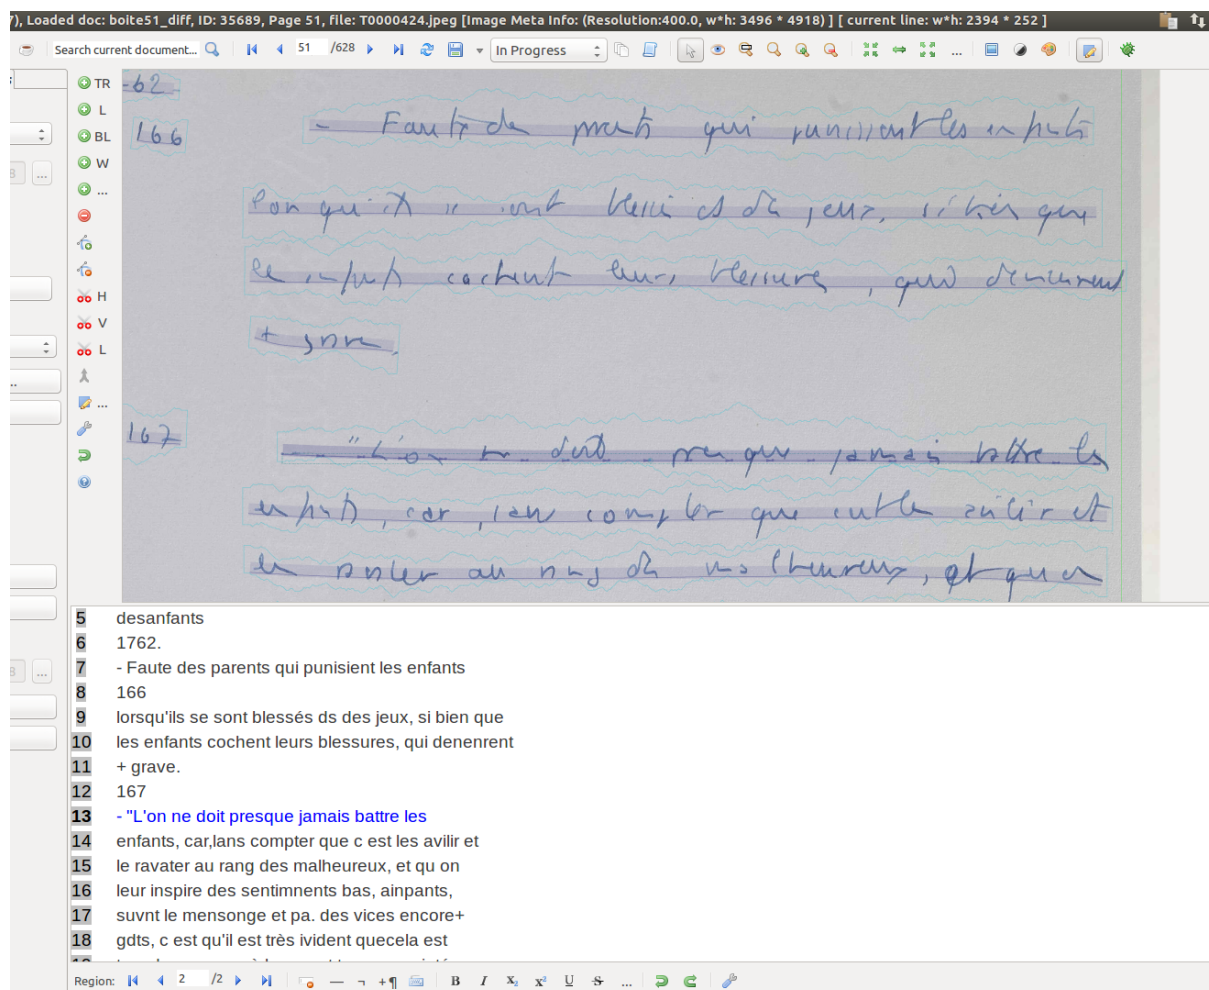 7), Loaded doc: boite51_diff, ID: 35689, Page 51, file: T0000424.jpeg [Image Meta Info: (Resolution:400.0, w*h: 3496 * 4918) ] [ current line: w*h: 2394 * 252 ]
Search current document... 51 /628 In Progress ...
TR
L
BL
W
...
H
V
L
...
-62
166 - Faute des parents qui punissent les enfants
lorsqu'ils se sont blessés ds des jeux, si bien que
les enfants cachent leurs blessures, qui demeurent
+ grave.
167 - "L'on ne doit presque jamais battre les
enfants, car, sans compter que c'est les avilir et
les au rang des malheureux, et qu'on
5 desanfants
6 1762.
7 - Faute des parents qui punisient les enfants
8 166
9 lorsqu'ils se sont blessés ds des jeux, si bien que
10 les enfants cochent leurs blessures, qui denenrent
11 + grave.
12 167
13 - "L'on ne doit presque jamais battre les
14 enfants, car,lans compter que c est les avilir et
15 le ravater au rang des malheureux, et qu on
16 leur inspire des sentimnents bas, ainpants,
17 suvnt le mensonge et pa. des vices encore+
18 gdts, c est qu'il est très ivident quecela est
Region: 2 /2 B I X₂ X² U S ...